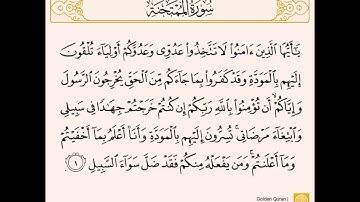 سُورَةُ الْمُمْتَحَنَةِ
يَٰٓأَيُّهَا الَّذِينَ ءَامَنُوا لَا تَتَّخِذُوا عَدُوِّى وَعَدُوَّكُمْ أَوْلِيَآءَ تُلْقُونَ
إِلَيْهِم بِالْمَوَدَّةِ وَقَدْ كَفَرُوا بِمَا جَآءَكُم مِّنَ الْحَقِّ يُخْرِجُونَ الرَّسُولَ
وَإِيَّاكُمْ أَن تُؤْمِنُوا بِاللَّهِ رَبِّكُمْ إِن كُنتُمْ خَرَجْتُمْ جِهَٰدًا فِى سَبِيلِى
وَابْتِغَآءَ مَرْضَاتِى تُسِرُّونَ إِلَيْهِم بِالْمَوَدَّةِ وَأَنَا۠ أَعْلَمُ بِمَآ أَخْفَيْتُمْ
وَمَآ أَعْلَنتُمْ وَمَن يَفْعَلْهُ مِنكُمْ فَقَدْ ضَلَّ سَوَآءَ السَّبِيلِ ١
Golden Quran |